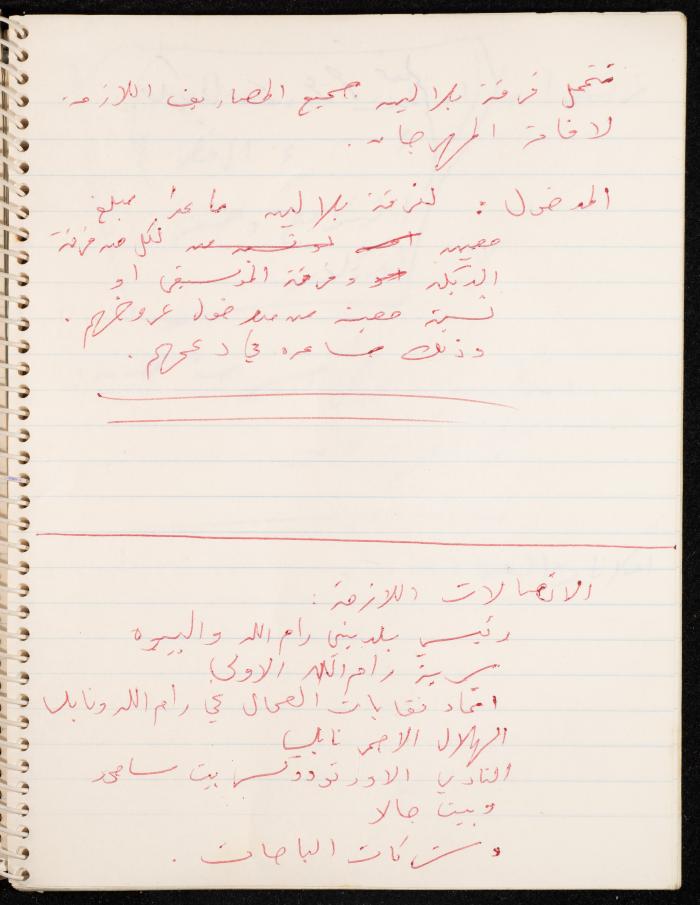 تتحمل فرقة بلالين جميع المصاريف اللازمة
لاقامة المهرجان.
المدخول: لفرقة بلالين ما عدا مبلغ
معين لكل من فرقة
الدبكة وفرقة الموسيقى او
نسبة معينة من مدخول عروضهم.
وذلك مساعده في دعمهم.
الاتصالات اللازمة:
رئيسي بلديتي رام الله والبيره
سرية رام الله الاولى
اتحاد نقابات العمال في رام الله ونابلس
الهلال الاحمر نابلس
النادي الاورثوذوكسي بيت ساحور
وبيت جالا
وشركات الباصات.